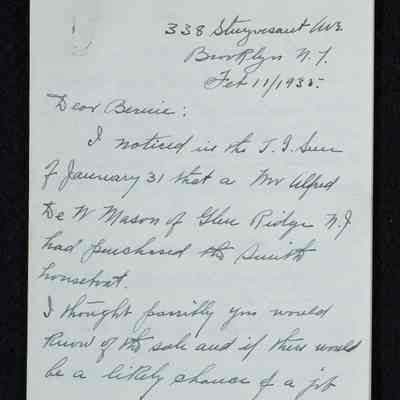 338 Stuyvesant Ave.
Brooklyn N.Y.
Feb 11/1935.
Dear Bernie:
I noticed in the T. I. Sun
of January 31 that a Mr Alfred
De W Mason of Glen Ridge N.J
had purchased the Smith
houseboat.
I thought possibly you would
know of the sale and if there would
be a likely chance of a job